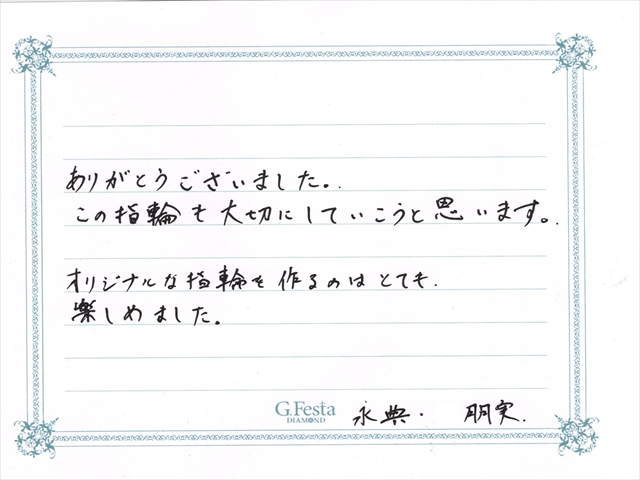 ありがとうございました。
この指輪を大切にしていこうと思います。
オリジナルな指輪を作るのはとても
楽しめました。
G.Festa
DIAMOND
永典・朋実